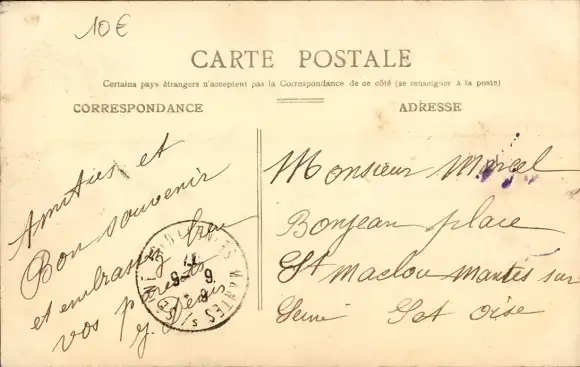 10€
CARTE POSTALE
Certains pays étrangers n'acceptent pas la Correspondance de ce côté (se renseigner à la poste)
CORRESPONDANCE
ADRESSE
Amitiés et
Bon souvenir
et embrassez bien
vos parents
J. Denis
Monsieur Marcel
Bonjean place
St Maclou Mantes sur
Seine Set Oise
MANTES